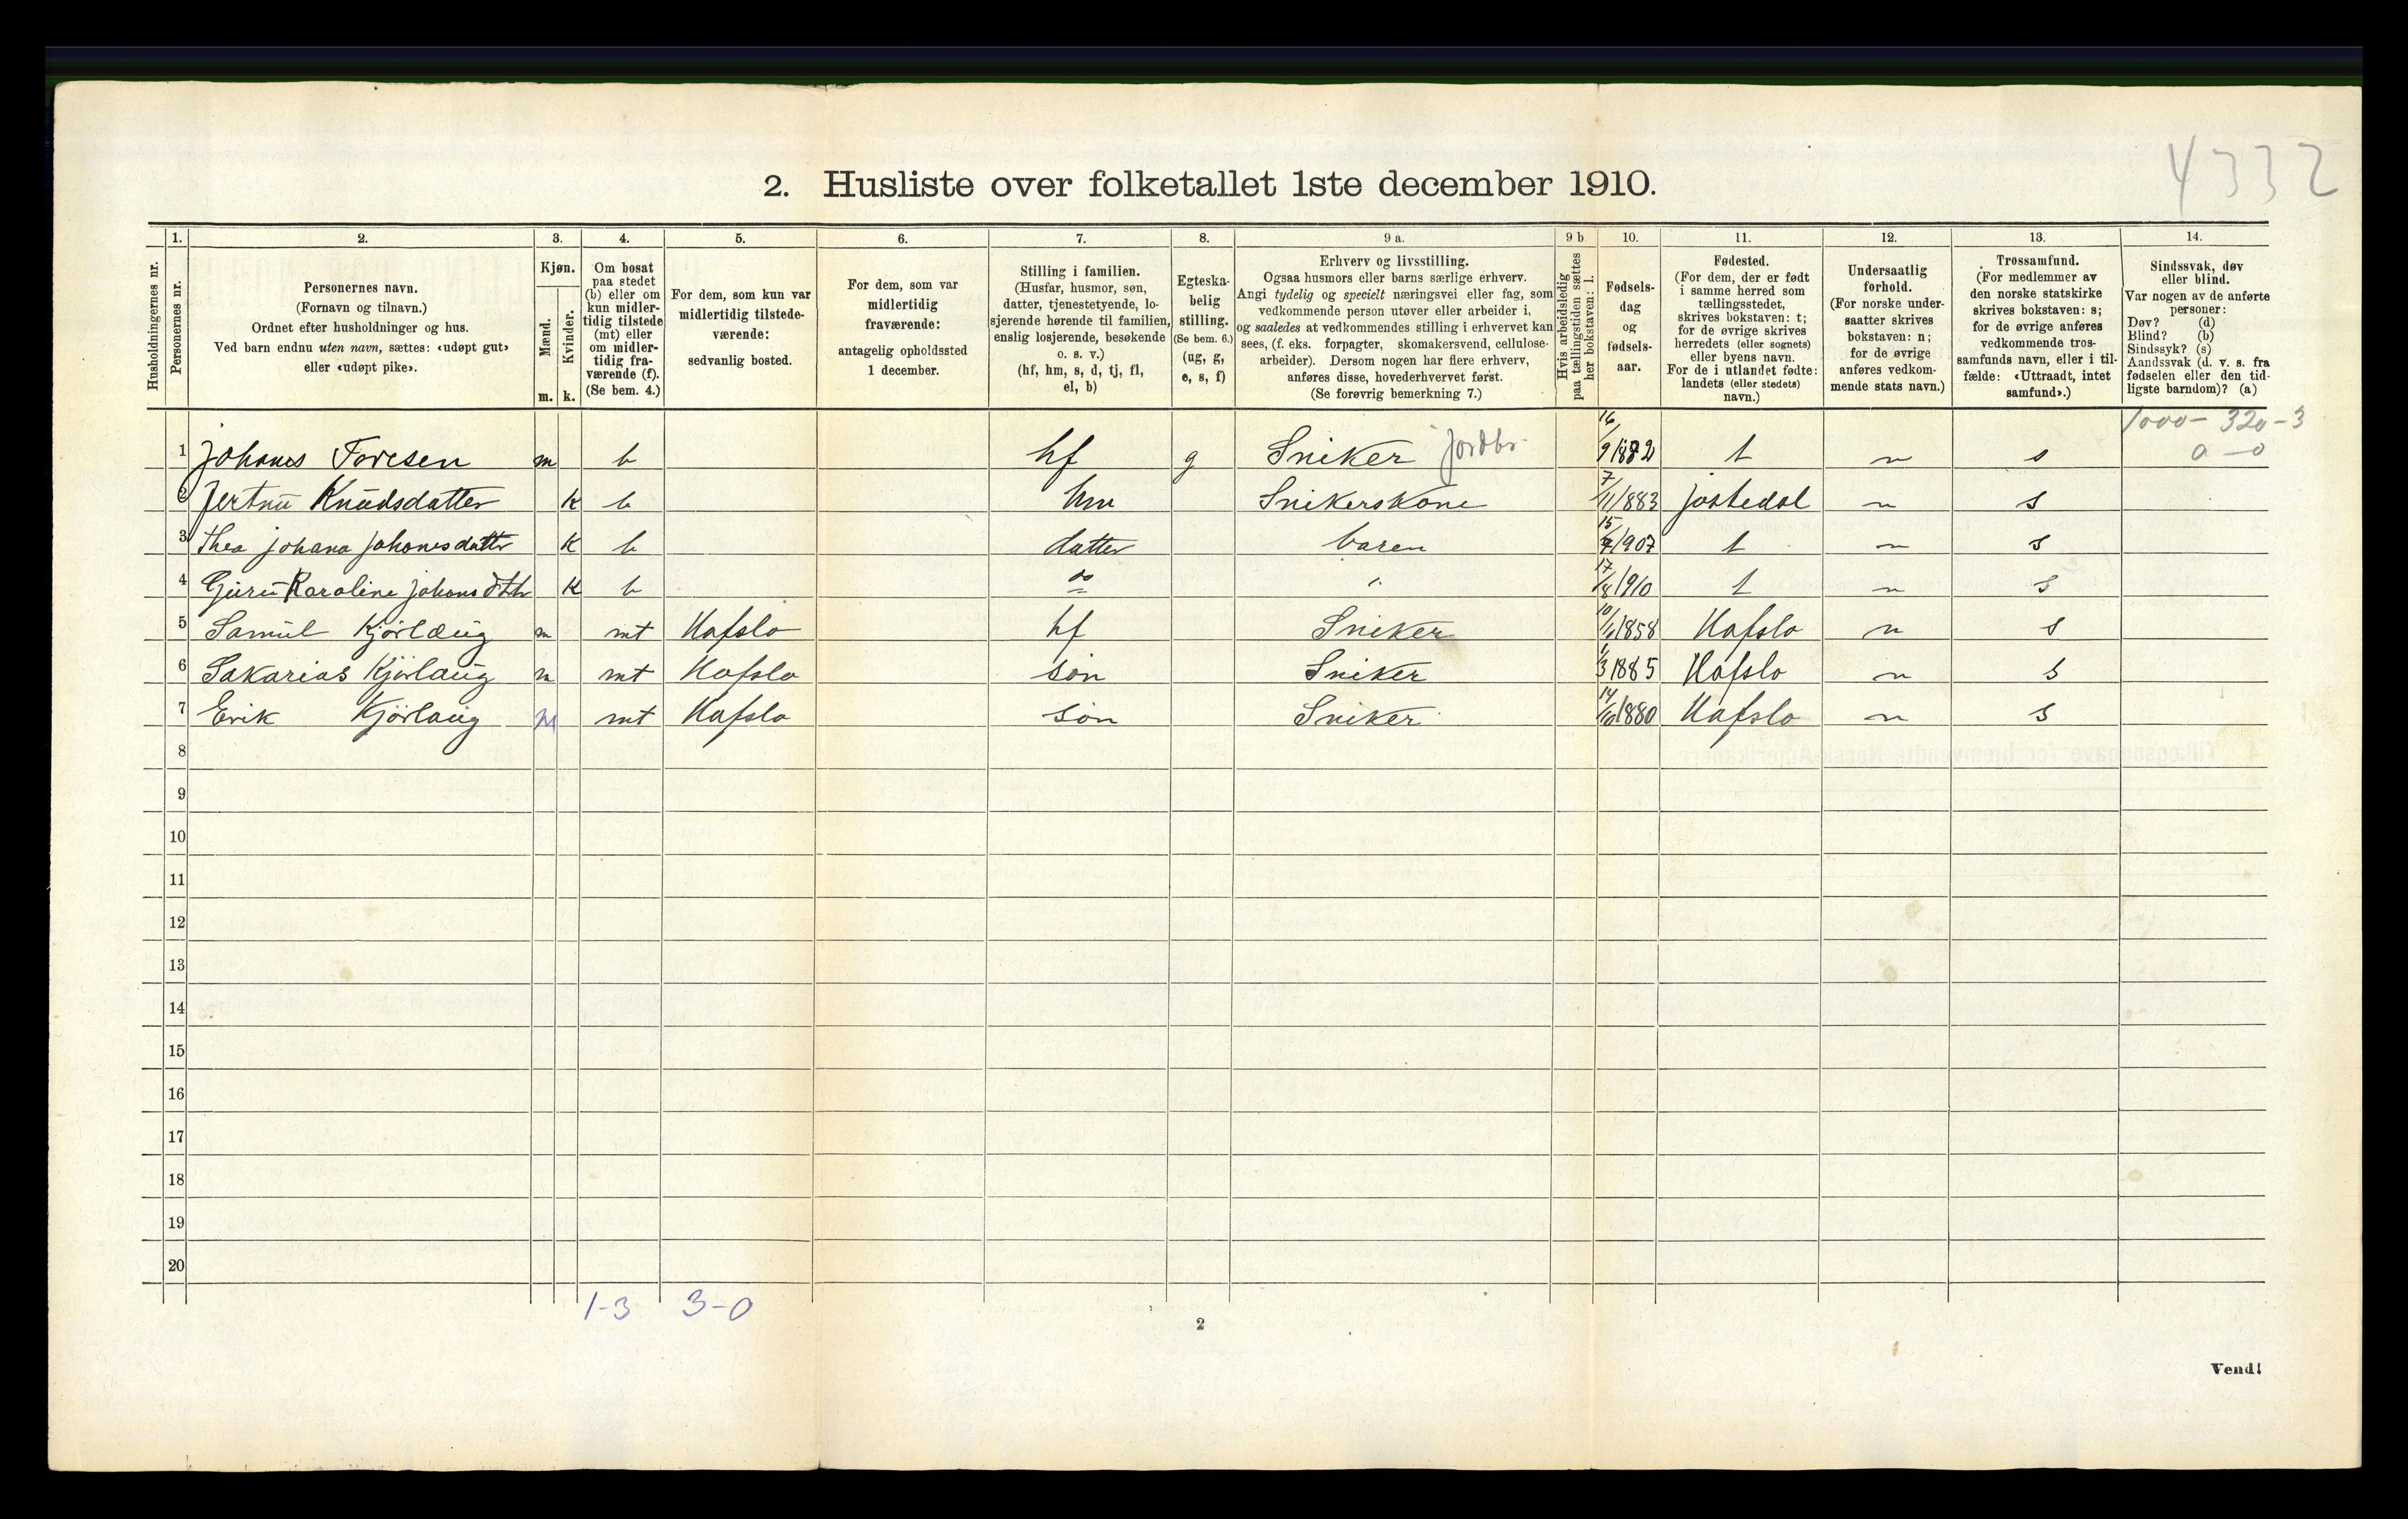 4332
2. Husliste over folketallet 1ste december 1910.
Husholdningernes nr.
1.
Personernes nr.
2.
Personernes navn.
(Fornavn og tilnavn.)
Ordnet efter husholdninger og hus.
Ved barn endnu uten navn, sættes: «udøpt gut»
eller «udøpt pike».
3.
Kjøn.
Mænd.
Kvinder.
m. k.
4.
Om bosat
paa stedet
(b) eller om
kun midler-
tidig tilstede
(mt) eller
om midler-
tidig fra-
værende (f).
(Se bem. 4.)
5.
For dem, som kun var
midlertidig tilstede-
værende:
sedvanlig bosted.
6.
For dem, som var
midlertidig
fraværende:
antagelig opholdssted
1 december.
7.
Stilling i familien.
(Husfar, husmor, søn,
datter, tjenestetyende, lo-
sjerende hørende til familien,
enslig losjerende, besøkende
o. s. v.)
(hf, hm, s, d, tj, fl,
el, b)
8.
Egteska-
belig
stilling.
(Se bem. 6.)
(ug, g,
e, s, f)
9 a.
Erhverv og livsstilling.
Ogsaa husmors eller barns særlige erhverv.
Angi tydelig og specielt næringsvei eller fag, som
vedkommende person utøver eller arbeider i,
og saaledes at vedkommendes stilling i erhvervet kan
sees, (f. eks. forpagter, skomakersvend, cellulose-
arbeider). Dersom nogen har flere erhverv,
anføres disse, hovederhvervet først.
(Se forøvrig bemerkning 7.)
9 b
Hvis arbeidsledig
paa tællingstiden sættes
her bokstaven: l.
10.
Fødsels-
dag
og
fødsels-
aar.
11.
Fødested.
(For dem, der er født
i samme herred som
tællingsstedet,
skrives bokstaven: t;
for de øvrige skrives
herredets (eller sognets)
eller byens navn.
For de i utlandet fødte:
landets (eller stedets)
navn.)
12.
Undersaatlig
forhold.
(For norske under-
saatter skrives
bokstaven: n;
for de øvrige
anføres vedkom-
mende stats navn.)
13.
Trossamfund.
(For medlemmer av
den norske statskirke
skrives bokstaven: s;
for de øvrige anføres
vedkommende tros-
samfunds navn, eller i til-
fælde: «Uttraadt, intet
samfund».)
14.
Sindssvak, døv
eller blind.
Var nogen av de anførte
personer:
Døv? (d)
Blind? (b)
Sindssyk? (s)
Aandssvak (d. v. s. fra
fødselen eller den tid-
ligste barndom)? (a)
1000 - 320 - 3
a - 0
1 Johanes Toresen m b hf g Sniker Jordbr. 16/9 1882 t n s
2 Jertru Knudsdatter K b hm Snikerskone 7/11 1883 jostedal n s
3 Thea johana johanesdatter K b datter baren 15/ 1907 t n s
4 Guru Karoline johans dttr K b do 17/8 1910 t n s
5 Samul Kjörlaug m mt Hafslo hf Sniker 10/ 1858 Hafslo n s
6 Sakarias Kjörlaug m mt Hafslo sön Sniker 1/3 1885 Hafslo n s
7 Erik Kjörlaug m mt Hafslo sön Sniker 14/10 1880 Hafslo n s
8
9
10
11
12
13
14
15
16
17
18
19
20
1-3 3-0
2
Vend!